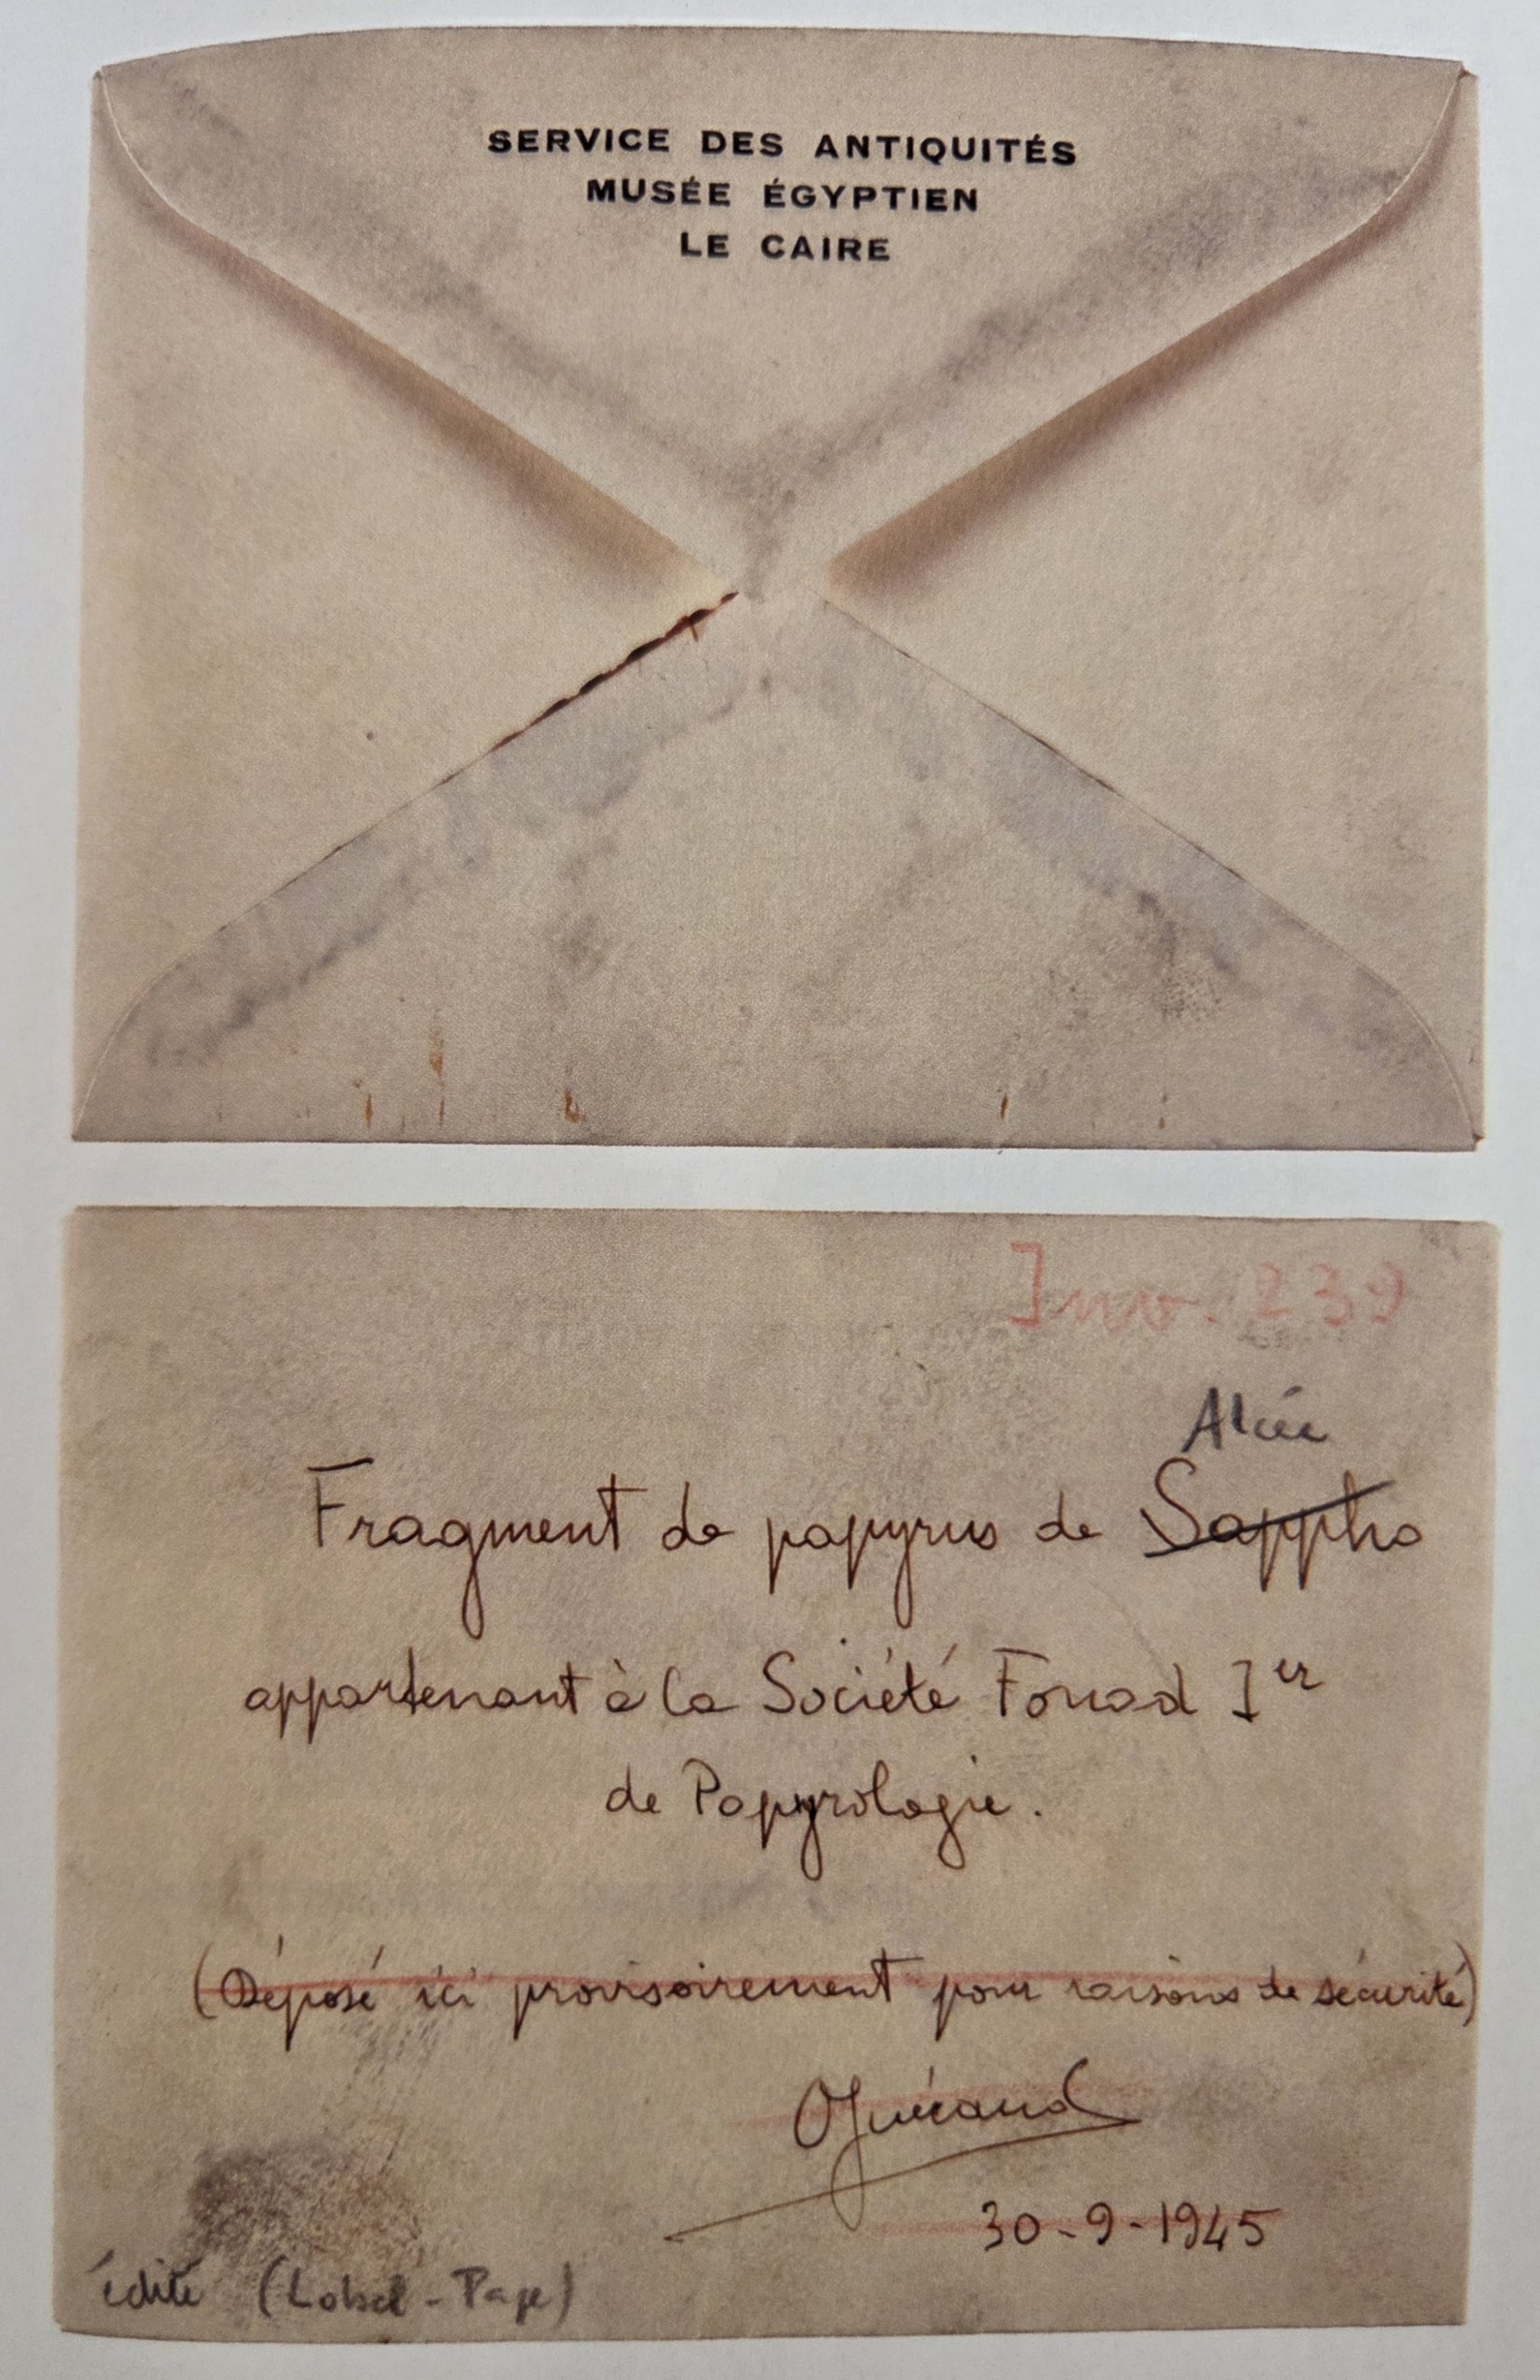 SERVICE DES ANTIQUITÉS
MUSÉE ÉGYPTIEN
LE CAIRE
Inv. 239
Alcée
Fragment de papyrus de Sappho
appartenant à la Société Fouad Ier
de Papyrologie.
(Déposé ici provisoirement pour raisons de sécurité)
OGuéraud
30-9-1945
édité (Lobel-Page)